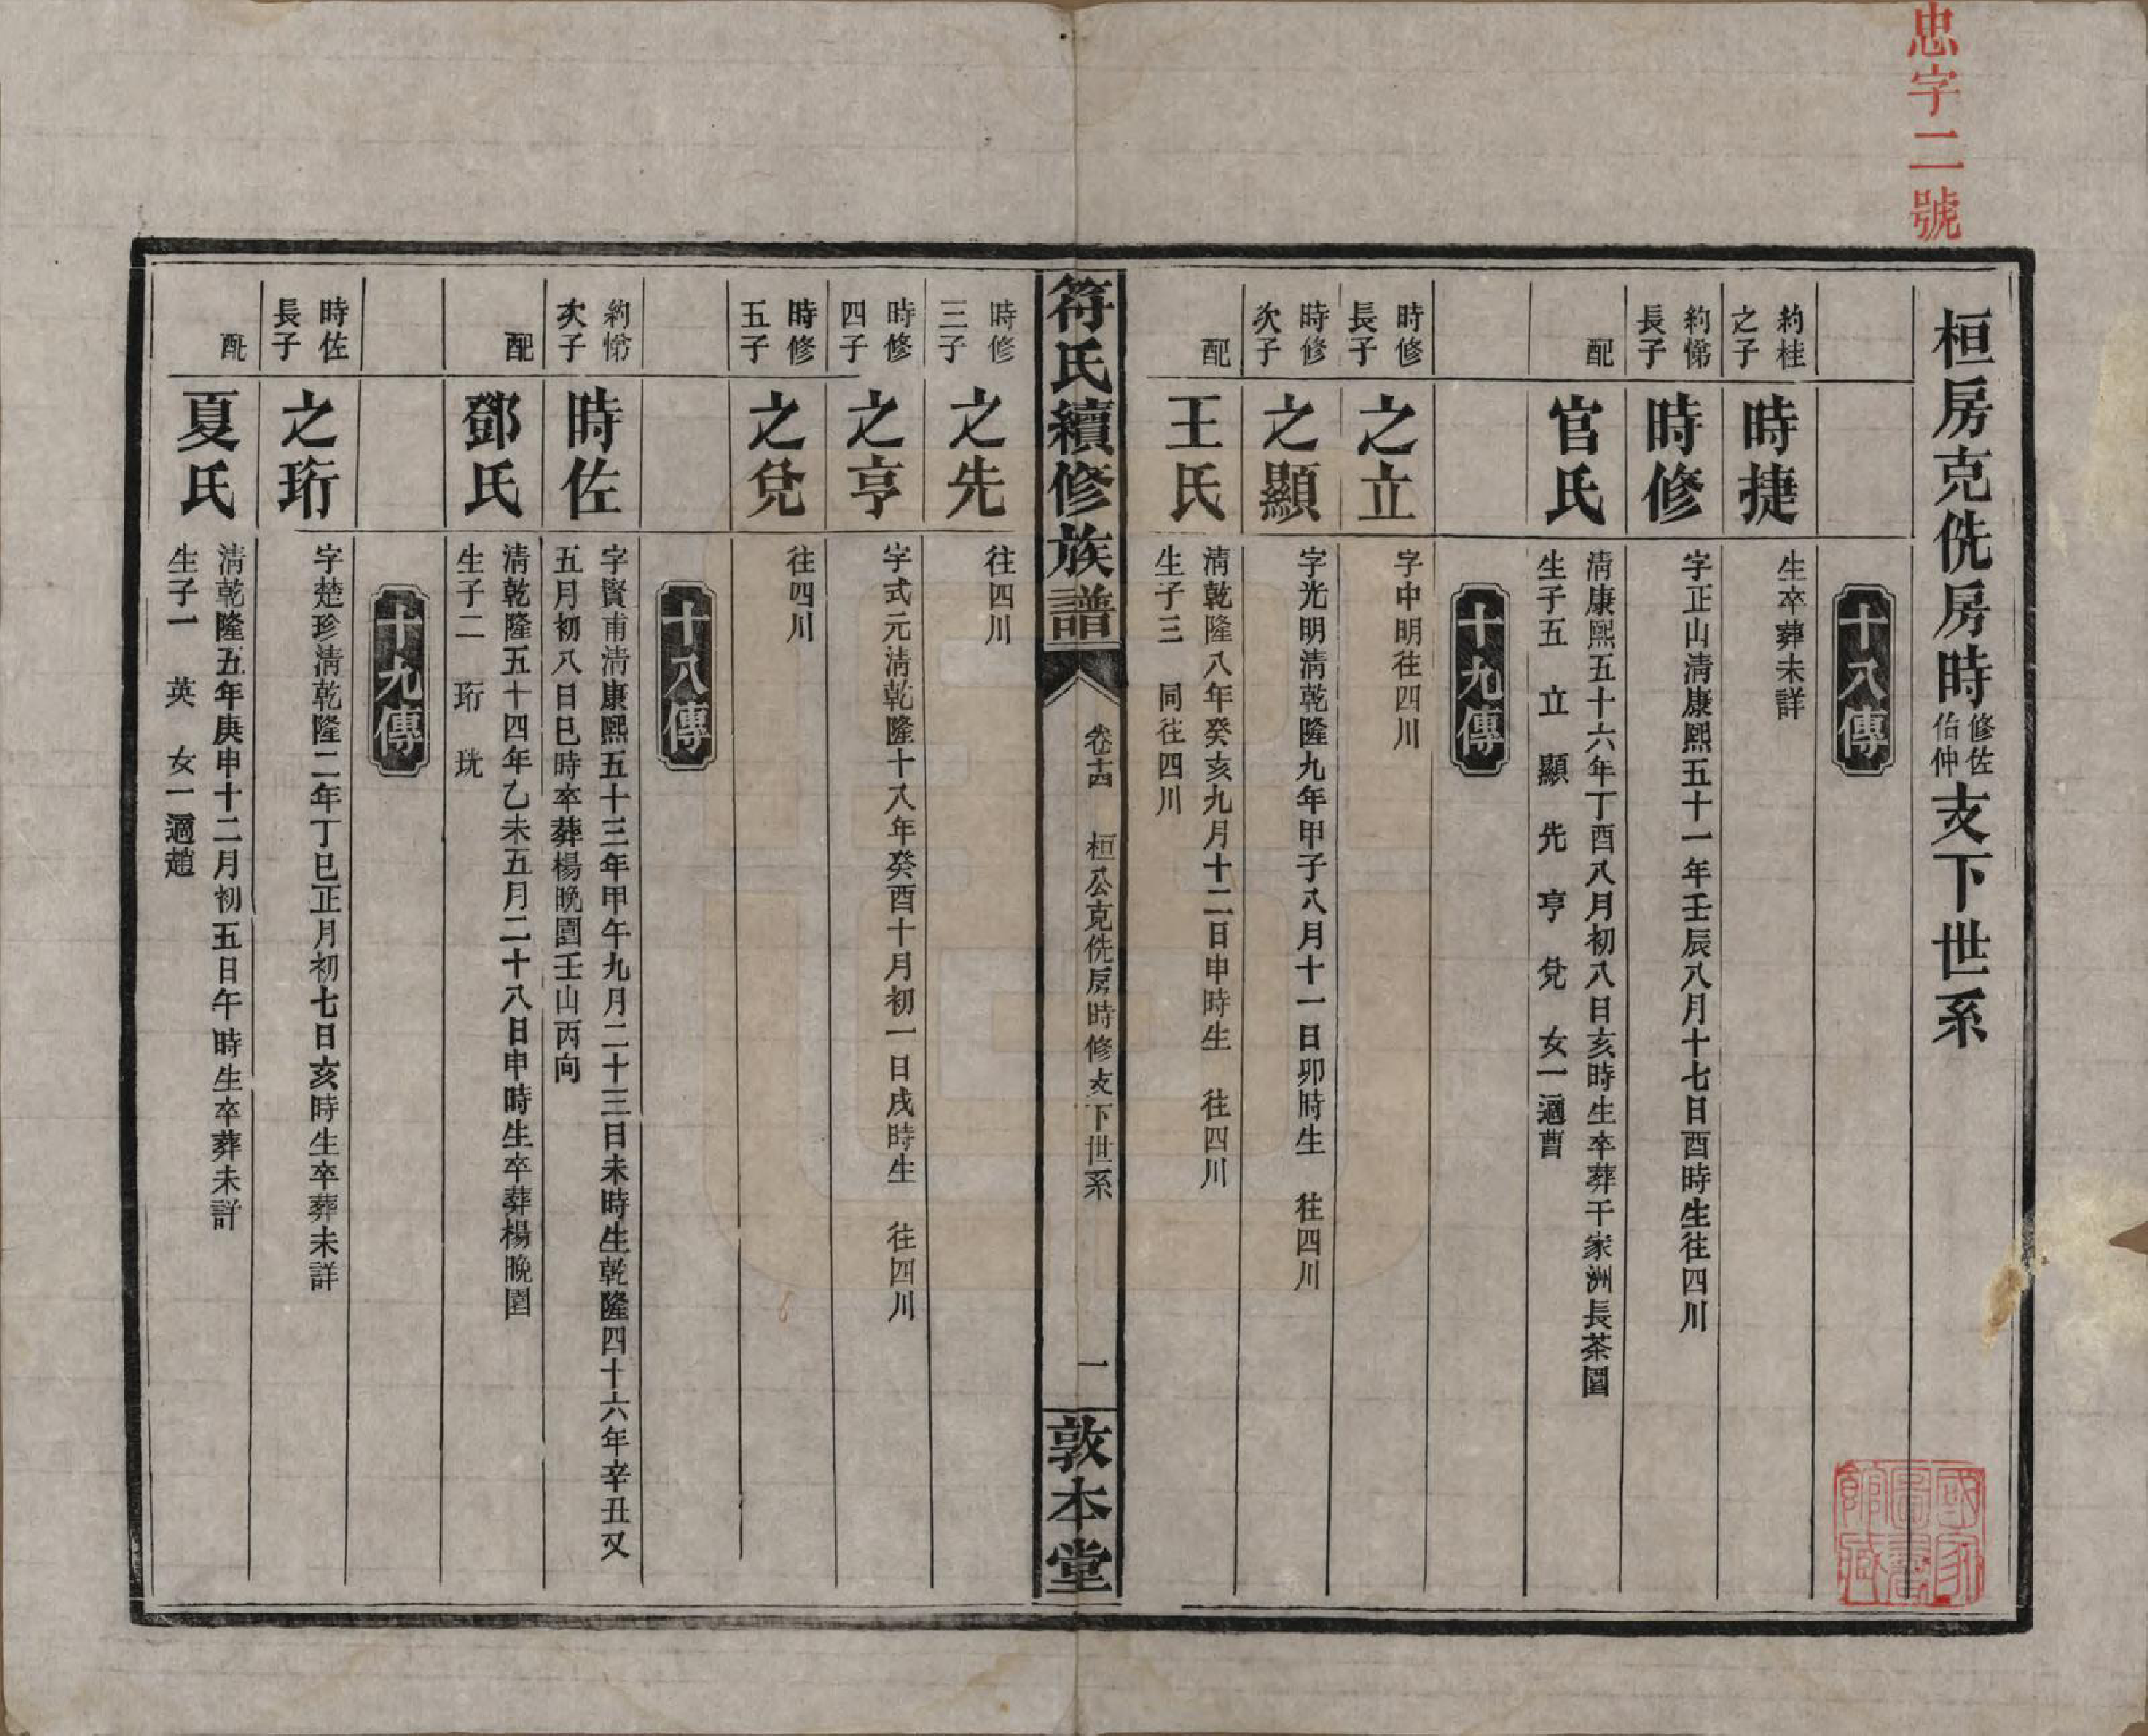 忠字二號
桓房克侁房時修佐佁仲支下世系
十八傳
約桂之子
時捷
生卒葬未詳
約悌長子
時修
字正山淸康熙五十一年壬辰八月十七日酉時生往四川
配
官氏
淸康熙五十六年丁酉八月初八日亥時生卒葬干家洲長茶園
生子五 立 顯 先 亨 兌 女一適曹
十九傳
時修長子
之立
字中明往四川
時修次子
之顯
字光明淸乾隆九年甲子八月十一日卯時生 往四川
配
王氏
淸乾隆八年癸亥九月十二日申時生 往四川
生子三 同往四川
符氏續修族譜
卷十四 桓公克侁房時修支下世系
一
敦本堂
時修三子
之先
往四川
時修四子
之亨
字式元淸乾隆十八年癸酉十月初一日戌時生 往四川
時修五子
之兌
往四川
十八傳
約悌次子
時佐
字賢甫淸康熙五十三年甲午九月二十三日未時生乾隆四十六年辛丑又
五月初八日巳時卒葬楊晚園壬山丙向
配
鄧氏
淸乾隆五十四年乙未五月二十八日申時生卒葬楊晚園
生子二 珩 珖
十九傳
時佐長子
之珩
字楚珍淸乾隆二年丁巳正月初七日亥時生卒葬未詳
配
夏氏
淸乾隆五年庚申十二月初五日午時生卒葬未詳
生子一 英 女一適趙
國家圖書館藏